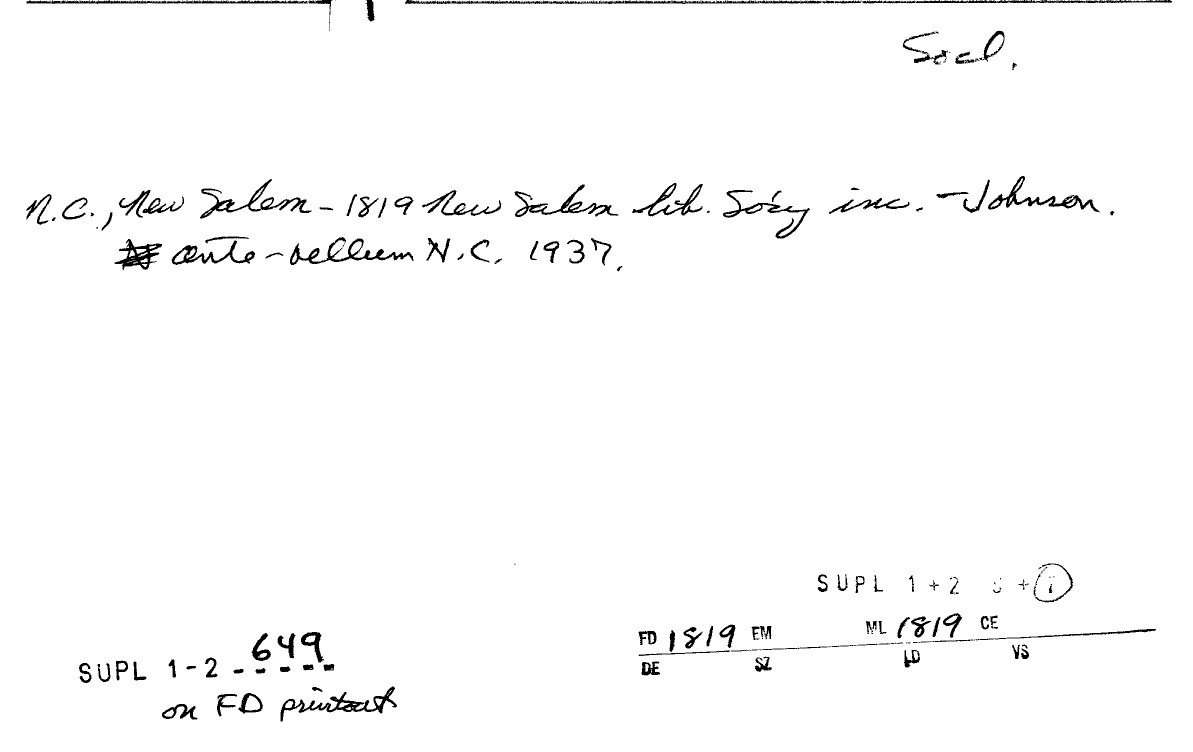 Socl.
N.C., New Salem - 1819 New Salem lib. Soc'y inc. - Johnson.
ante-bellum N.C. 1937.
SUPL 1 + 2 S + 1
FD 1819 EM ML 1819 CE
DE SZ LD VS
SUPL 1-2 - 649
on FD printout